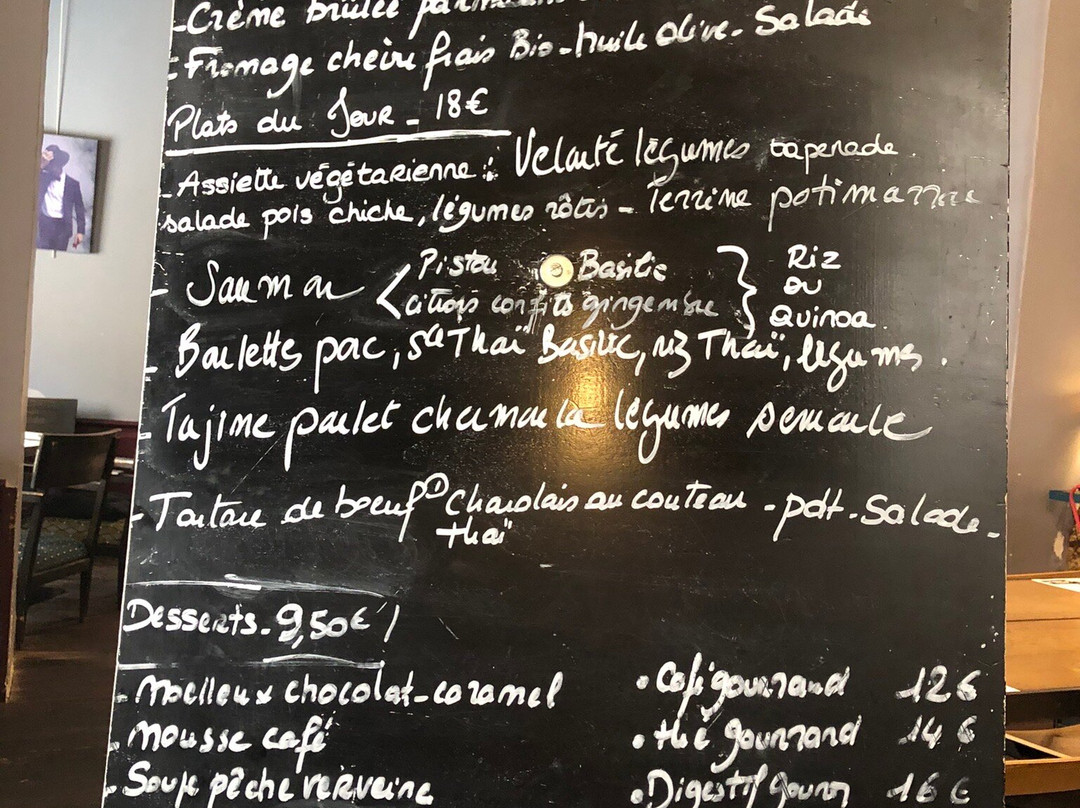 -Crème brûlée
-Fromage chèvre frais Bio-huile olive. Salade
Plats du Jour - 18€
-Assiette végétarienne : Velouté légumes tapenade.
salade pois chiche, légumes rôtis - Terrine potimarron
- Saumon < Pistou Basilic } Riz
citrons confits gingembre ou
Quinoa.
- Boulettes porc, sce Thaï Basilic, riz Thaï, légumes.
- Tajine poulet chermoula légumes semoule
- Tartare de boeuf Charolais au couteau - pdt. Salade -
thaï
Desserts - 9,50€
- Moelleux chocolat-caramel • Café gourmand 12€
- Mousse café • thé gourmand 14€
- Soupe pêche verveine • Digestif gourm 16€